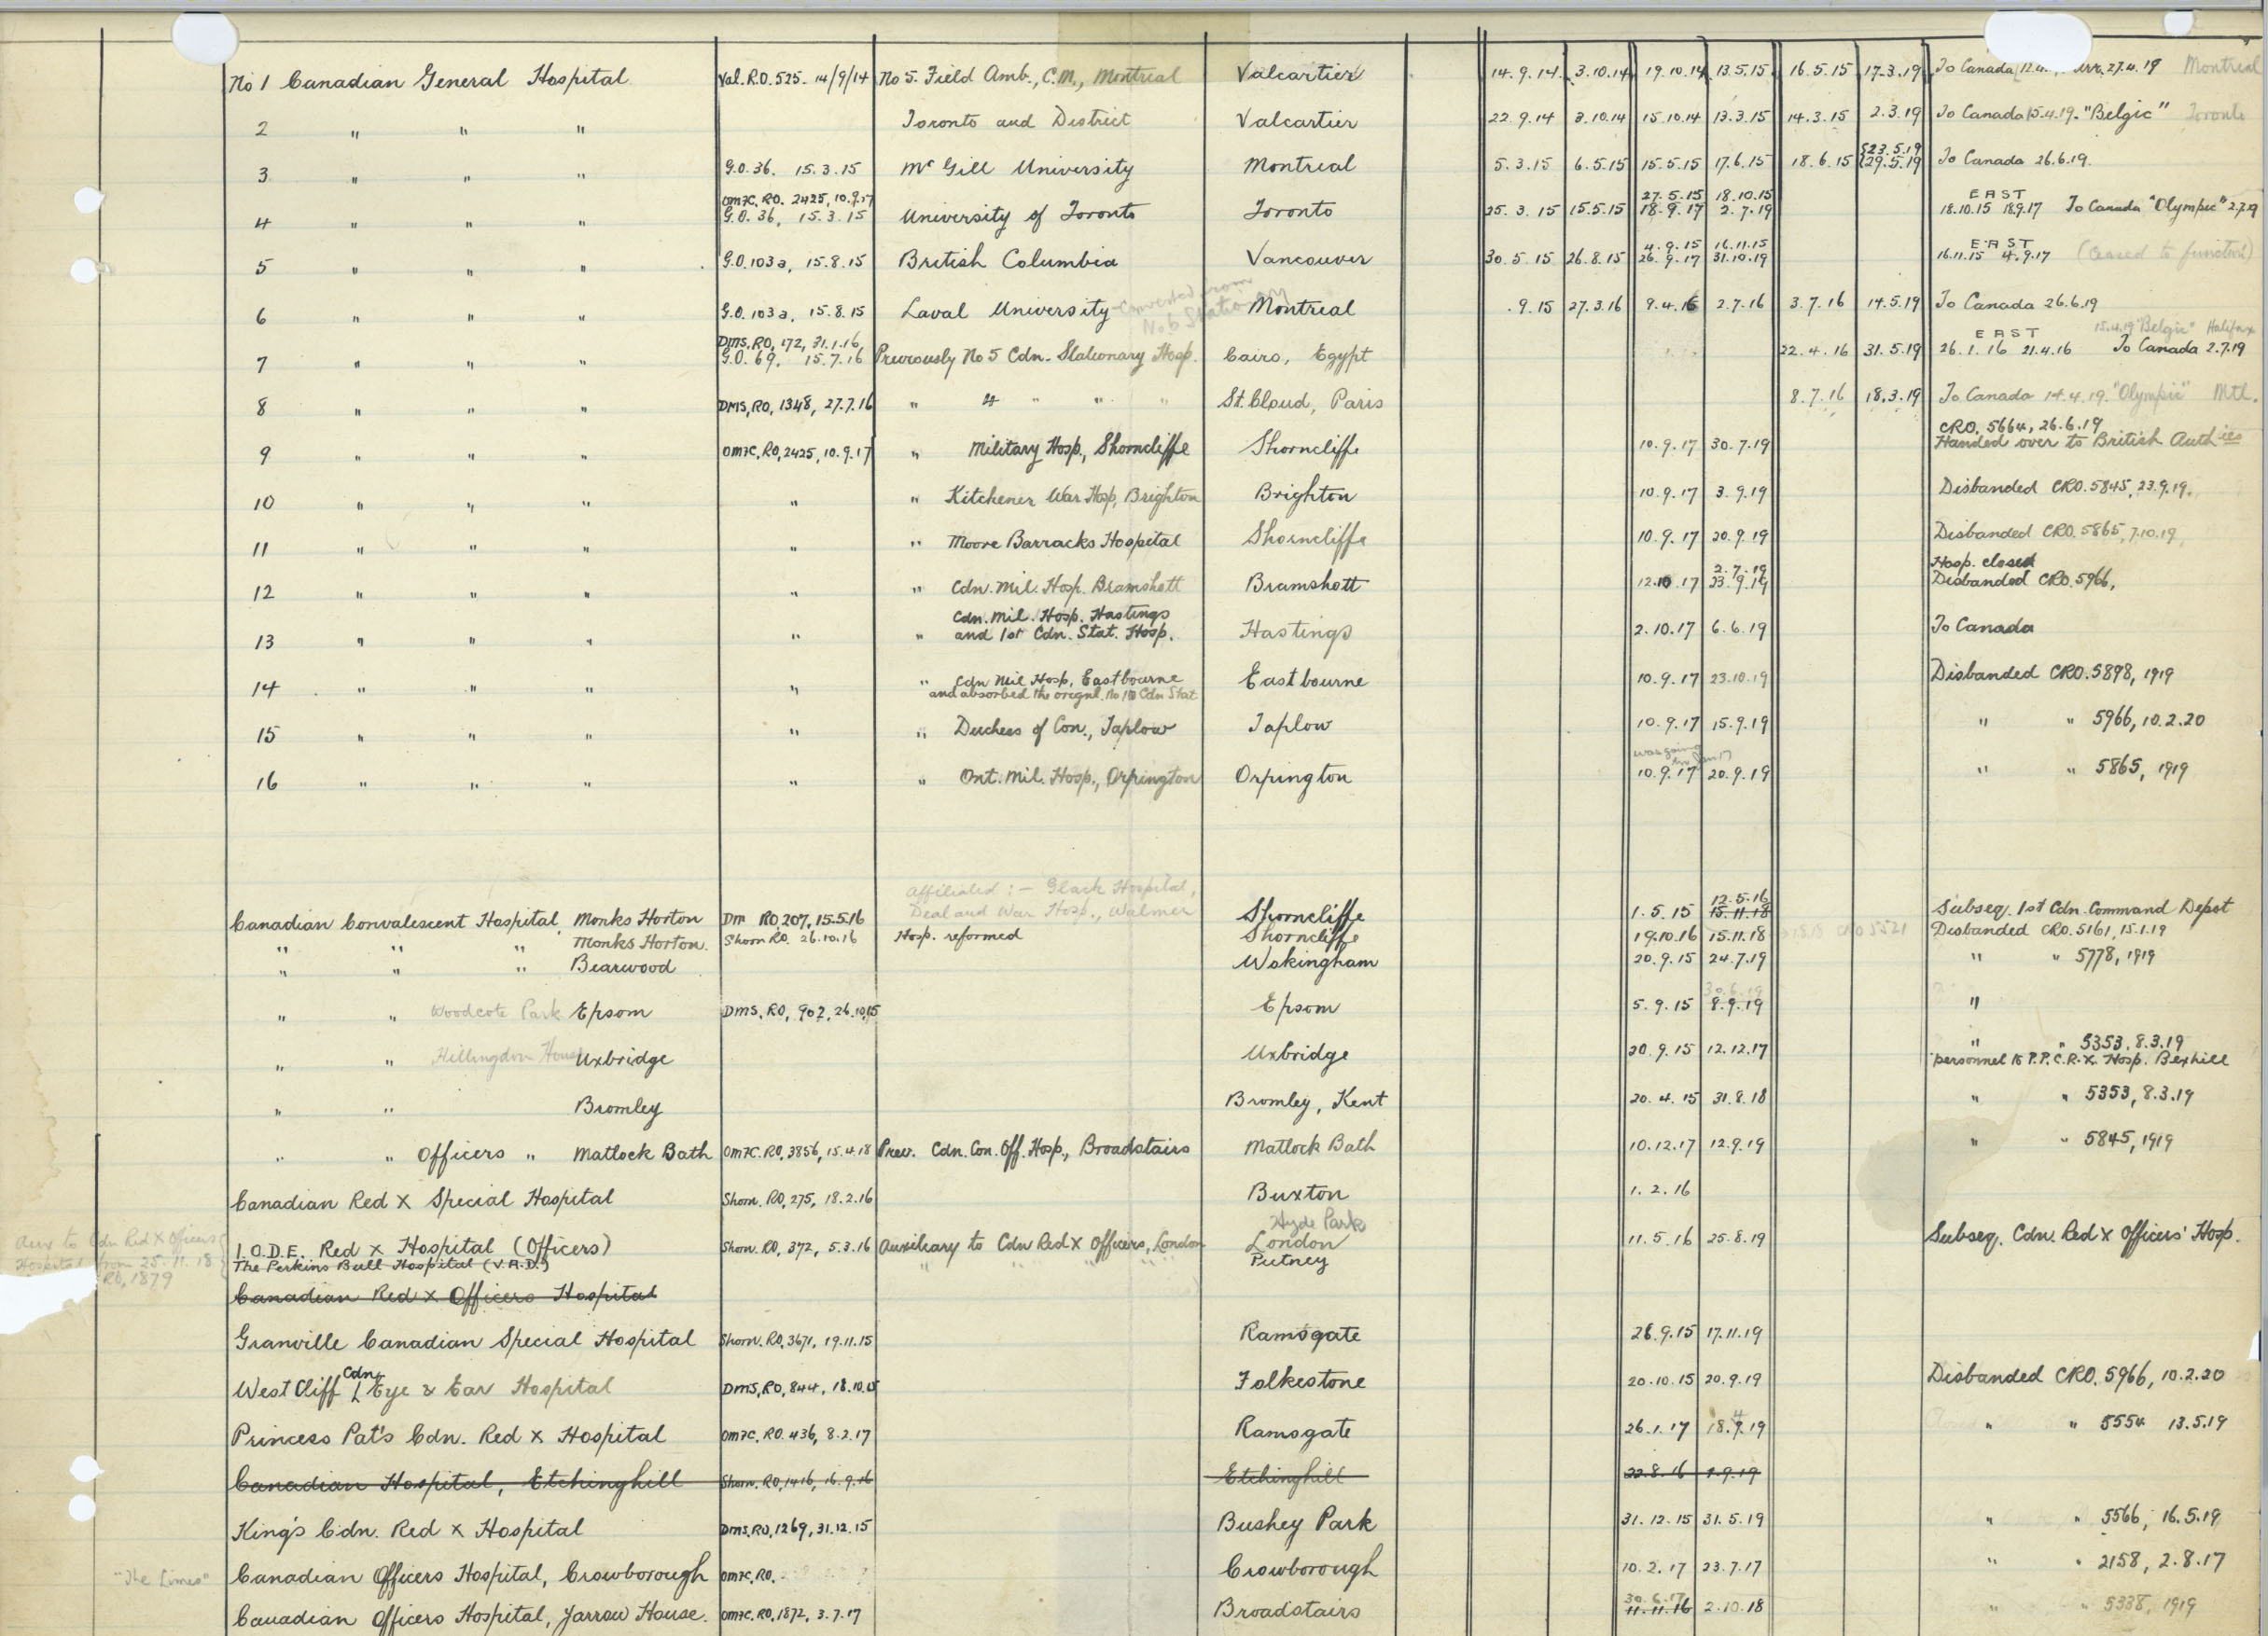 No 1 Canadian General Hospital Val. R.O. 525. 14/9/14 No 5. Field Amb., C.M., Montreal Valcartier 14.9.14 3.10.14 19.10.14 13.5.15 16.5.15 17.3.19 To Canada Arr. 27.4.19 Montreal
2 " " " Toronto and District Valcartier 22.9.14 3.10.14 15.10.14 13.3.15 14.3.15 2.3.19 To Canada 15.4.19. "Belgic" Toronto
23.5.19
3 " " " G.O. 36. 15.3.15 McGill University Montreal 5.3.15 6.5.15 15.5.15 17.6.15 18.6.15 29.5.19 To Canada 26.6.19.
OMFC. RO. 2425, 10.9.17 27.5.15 18.10.15 EAST
4 " " " G.O. 36, 15.3.15 University of Toronto Toronto 25.3.15 15.5.15 18.9.17 2.7.19 18.10.15 18.9.17 To Canada "Olympic" 2.7.19
4.9.15 16.11.15 EAST
5 " " " G.O. 103a, 15.8.15 British Columbia Vancouver 30.5.15 26.8.15 26.9.17 31.10.19 16.11.15 4.9.17 (Ceased to function)
converted from
6 " " " G.O. 103a, 15.8.15 Laval University Montreal .9.15 27.3.16 9.4.16 2.7.16 3.7.16 14.5.19 To Canada 26.6.19
No 6 Stationary
DMS. RO, 172, 31.1.16 EAST 15.4.19 "Belgic" Halifax
7 " " " G.O. 69. 15.7.16 Previously No 5 Cdn. Stationary Hosp. Cairo, Egypt 22.4.16 31.5.19 26.1.16 21.4.16 To Canada 2.7.19
8 " " " DMS, RO, 1348, 27.7.16 " 4 " " " St. Cloud, Paris 8.7.16 18.3.19 To Canada 14.4.19. "Olympic" Mtl.
CRO. 5664, 26.6.19
9 " " " OMFC, RO, 2425, 10.9.17 " Military Hosp., Shorncliffe Shorncliffe 10.9.17 30.7.19 Handed over to British Authies
10 " " " " " Kitchener War Hosp, Brighton Brighton 10.9.17 3.9.19 Disbanded CRO. 5845, 23.9.19.
11 " " " " " Moore Barracks Hospital Shorncliffe 10.9.17 20.9.19 Disbanded CRO. 5865, 7.10.19
2.7.19 Hosp. closed
12 " " " " " Cdn. Mil. Hosp. Bramshott Bramshott 12.10.17 23.9.19 Disbanded CRO. 5966,
Cdn. Mil. Hosp. Hastings
13 " " " " " and 1st Cdn. Stat. Hosp. Hastings 2.10.17 6.6.19 To Canada
14 " " " " " Cdn Mil Hosp, Eastbourne Eastbourne 10.9.17 23.10.19 Disbanded CRO. 5898, 1919
and absorbed the orignl. No 10 Cdn Stat
15 " " " " " Duchess of Con., Taplow Taplow 10.9.17 15.9.19 " " 5966, 10.2.20
was going
16 " " " " " Ont. Mil. Hosp., Orpington Orpington 10.9.17 20.9.19 " " 5865, 1919
Affiliated :- Glack Hospital,
Deal and War Hosp., Walmer 12.5.16
Canadian Convalescent Hospital, Monks Horton DM RO, 207, 15.5.16 Shorncliffe 1.5.15 15.11.18 Subseq. 1st Cdn Command Depot
" " " Monks Horton. Shorn RO. 26.10.16 Hosp. reformed Shorncliffe 19.10.16 15.11.18 CRO 5521 Disbanded CRO. 5161, 15.1.19
" " " Bearwood Wokingham 20.9.15 24.7.19 " " 5778, 1919
30.6.19
" " Woodcote Park Epsom DMS, RO, 902, 26.10.15 Epsom 5.9.15 8.9.19 "
" " Hillingdon House Uxbridge Uxbridge 20.9.15 12.12.17 " " 5353, 8.3.19
personnel to P.P.C.R.X. Hosp. Bexhill
" " Bromley Bromley, Kent 20.4.15 31.8.18 " " 5353, 8.3.19
" " Officers " Matlock Bath OMFC. RO, 3856, 15.4.18 Prev. Cdn. Con. Off. Hosp., Broadstairs Matlock Bath 10.12.17 12.9.19 " " 5845, 1919
Canadian Red X Special Hospital Shorn. RO, 275, 18.2.16 Buxton 1.2.16
Hyde Park
Aux to Cdn Red X Officers
I.O.D.E. Red X Hospital (Officers) Shorn. RO, 372, 5.3.16 Auxiliary to Cdn Red X Officers, London London 11.5.16 25.8.19 Subseq. Cdn. Red X Officers' Hosp.
Hospital from 25.11.18
The Perkins Bull Hospital (V.A.D.) " " " " Putney
RO, 1879
Canadian Red X Officers Hospital
Granville Canadian Special Hospital Shorn. RO, 3671, 19.11.15 Ramsgate 26.9.15 17.11.19
Cdn
West Cliff Eye & Ear Hospital DMS, RO, 844, 18.10.15 Folkestone 20.10.15 20.9.19 Disbanded CRO. 5966, 10.2.20
4
Princess Pat's Cdn. Red X Hospital OMFC. RO. 436, 8.2.17 Ramsgate 26.1.17 18.9.19 " " 5554 13.5.19
Canadian Hospital, Etchinghill Shorn. RO, 1416, 16.9.16 Etchinghill 22.8.16 1.9.19
King's Cdn. Red X Hospital DMS. RO, 1269, 31.12.15 Bushey Park 31.12.15 31.5.19 " " 5566, 16.5.19
"The Limes" Canadian Officers Hospital, Crowborough OMFC, RO. Crowborough 10.2.17 23.7.17 " " 2158, 2.8.17
30.6.17
Canadian Officers Hospital, Yarrow House. OMFC, RO, 1872, 3.7.17 Broadstairs 11.11.16 2.10.18 " " 5338, 1919